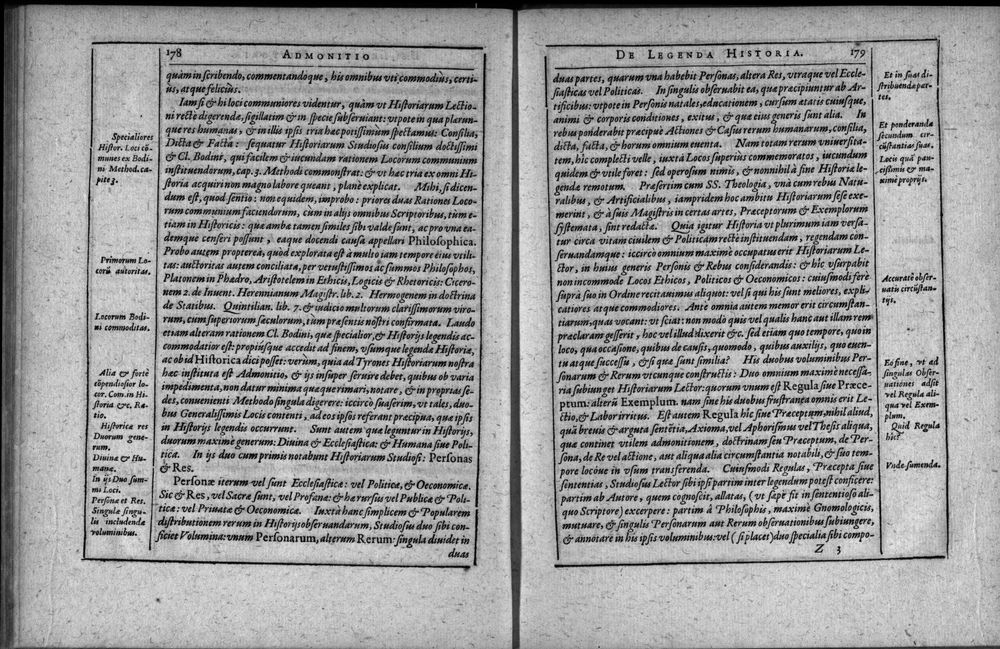 178 ADMONITIO
quàm in scribendo, commentandoque, his omnibus vti commodiùs, certi-
ùs, atque feliciùs.
Iam si & hi loci communiores videntur, quàm vt Historiarum Lectio-
ni rectè digerendæ, sigillatim & in specie subseruiant: vtpote in qua plærun-
que res humanas, & in illis ipsis tria hæc potissimùm spectamus: Consilia,
Dicta & Facta: sequatur Historiarum Studiosus consilium doctissimi
& Cl. Bodini, qui facilem & iucundam rationem Locorum communium
instituendorum, cap. 3. Methodi commonstrat: & vt hæc tria ex omni Hi-
storia acquiri non magno labore queant, planè explicat. Mihi, si dicen-
dum est, quod sentio: non equidem, improbo: priores duas Rationes Loco-
rum communium faciendorum, cum in alijs omnibus Scriptoribus, tùm e-
tiam in Historicis: quæ ambæ tamen similes sibi valde sunt, ac pro vna ea-
demque censeri possunt, eaque docendi causa appellari Philosophica.
Probo autem propterea, quòd explorata est à multo iam tempore eius vtili-
tas: auctoritas autem conciliata, per vetustissimos ac summos Philosophos,
Platonem in Phædro, Aristotelem in Ethicis, Logicis & Rhetoricis: Cicero-
nem 2. de Inuent. Herennianum Magistr. lib. 2. Hermogenem in doctrina
de Statibus. Quintilian. lib. 7. & iudicio multorum clarissimorum viro-
rum, cum superiorum sæculorum, tùm præsentis nostri confirmata. Laudo
etiam alteram rationem Cl. Bodini, quæ specialior, & Historijs legendis ac-
commodatior est: propiùsque accedit ad finem, vsumque legendæ Historiæ,
ac ob id Historica dici posset: verùm, quia ad Tyrones Historiarum nostra
hæc instituta est Admonitio, & ijs insuper seruire debet, quibus ob varia
impedimenta, non datur minima quæque rimari, notare, & in proprias se-
des, conuenienti Methodo singula digerere: iccirco suaserim, vt tales, duo-
bus Generalissimis Locis contenti, ad eos ipsos referant præcipua, quæ ipsis
in Historijs legendis occurrunt. Sunt autem quæ leguntur in Historijs,
duorum maximè generum: Diuina & Ecclesiastica: & Humana siue Poli-
tica. In ijs duo cum primis notabunt Historiarum Studiosi: Personas
& Res.
Personæ iterum vel sunt Ecclesiasticæ: vel Politicæ, & Oeconomicæ.
Sic & Res, vel Sacræ sunt, vel Profanæ: & hæ rursùs vel Publicæ & Poli-
ticæ: vel Priuatæ & Oeconomicæ. Iuxta hanc simplicem & Popularem
distributionem rerum in Historijs obseruandarum, Studiosus duo sibi con-
ficiet Volumina: vnum Personarum, alterum Rerum: singula diuidet in
duas
Specialiores
Histor. Loci cō-
munes ex Bodi-
ni Method. ca-
pite 3.
Primorum Lo-
corū autoritas.
Locorum Bodi-
ni commoditas.
Alia & fortè
cōpendiosior lo-
cor. Com. in Hi-
storia &c. Ra-
tio.
Historicæ res
Duorum gene-
rum.
Diuinæ & Hu-
manæ.
In ijs Duo sum-
mi Loci.
Personæ et Res.
Singulæ singu-
lis includendæ
voluminibus.
DE LEGENDA HISTORIA. 179
duas partes, quarum vna habebit Personas, altera Res, vtraque vel Eccle-
siasticas vel Politicas. In singulis obseruabit ea, quæ præcipiuntur ab Ar-
tificibus: vtpote in Personis natales, educationem, cursum ætatis cuiusque,
animi & corporis conditiones, exitus, & quæ eius generis sunt alia. In
rebus ponderabit præcipuè Actiones & Casus rerum humanarum, consilia,
dicta, facta, & horum omnium euenta. Nam totam rerum vniuersita-
tem, hìc complecti velle, iuxtà Locos superius commemoratos, iucundum
quidem & vtile foret: sed operosum nimis, & nonnihil à fine Historiæ le-
gendæ remotum. Præsertim cum SS. Theologia, vnà cum rebus Natu-
ralibus, & Artificialibus, iampridem hoc ambitu Historiarum sese exe-
merint, & à suis Magistris in certas artes, Præceptorum & Exemplorum
systemata, sint redactæ. Quia igitur Historia vt plurimum iam versa-
tur circa vitam ciuilem & Politicam rectè instituendam, regendam con-
seruandamque: iccirco omnium maximè occupatus erit Historiarum Le-
ctor, in huius generis Personis & Rebus considerandis: & hìc vsurpabit
non incommodè Locos Ethicos, Politicos & Oeconomicos: cuiusmodi ferè
supra suo in Ordine recitauimus aliquot: vel si qui his sunt meliores, expli-
catiores atque commodiores. Ante omnia autem memor erit circumstan-
tiarum, quas vocant: vt sciat: non modò quis vel qualis hanc aut illam rem
præclaram gesserit, hoc vel illud dixerit &c. sed etiam quo tempore, quo in
loco, qua occasione, quibus de causis, quomodo, quibus auxilijs, quo euen-
tu atque successu, & si quæ sunt similia? His duobus voluminibus Per-
sonarum & Rerum vtcunque constructis: Duo omnium maximè necessa-
ria subiunget Historiarum Lector: quorum vnum est Regula siue Præce-
ptum: alterū Exemplum. nam sine his duobus frustranea omnis erit Le-
ctio, & Labor irritus. Est autem Regula hìc siue Præceptum, nihil aliud,
quā breuis & arguta sententia, Axioma, vel Aphorismus vel Thesis aliqua,
quæ continet vtilem admonitionem, doctrinam seu Præceptum, de Per-
sona, de Re vel actione, aut aliqua alia circumstantia notabili, & suo tem-
pore locóue in vsum transferenda. Cuiusmodi Regulas, Præcepta siue
sententias, Studiosus Lector sibi ipsi partim inter legendum potest conficere:
partim ab Autore, quem cognoscit, allatas, (vt sæpè fit in sententioso ali-
quo Scriptore) excerpere: partim à Philosophis, maximè Gnomologicis,
mutuare, & singulis Personarum aut Rerum obseruationibus subiungere,
& annotare in his ipsis voluminibus: vel (si placet) duo specialia sibi compo-
Z 3
Et in suas di-
stribuendæ par-
tes,
Et ponderandæ
secundum cir-
cūstantias suas.
Locis quā pau-
cissimis & ma-
ximè proprijs.
Accuratè obser-
uatis circūstan-
tijs,
Eo fine, vt ad
singulas Obser-
uationes adsit
vel Regula ali-
qua vel Exem-
plum.
Quid Regula
hìc?
Vnde sumenda.